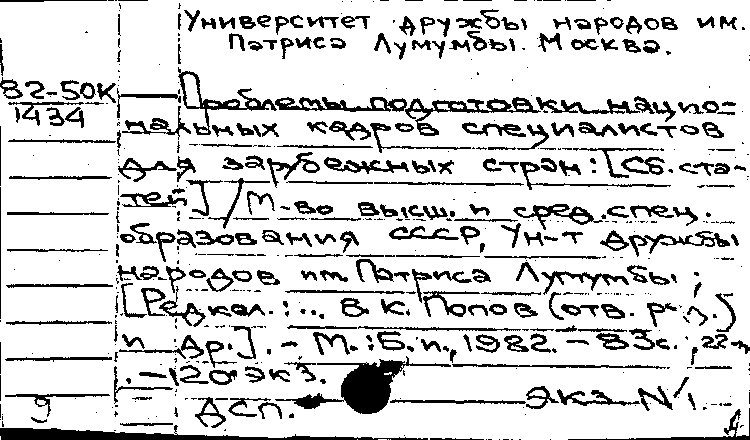 Университет дружбы народов им.
Патриса Лумумбы. Москва.
82-50К
1434
Проблемы подготовки нацио-
нальных кадров специалистов
для зарубежных стран: [Сб. ста-
тей] / М-во высш. и сред. спец.
образования СССР, Ун-т дружбы
народов им. Патриса Лумумбы;
[Редкол.: .. В. К. Попов (отв. ред.)
и др.]. - М.: Б. и., 1982. - 83 с.; 22
. - 120 экз.
9 ДСП. Экз. №1.